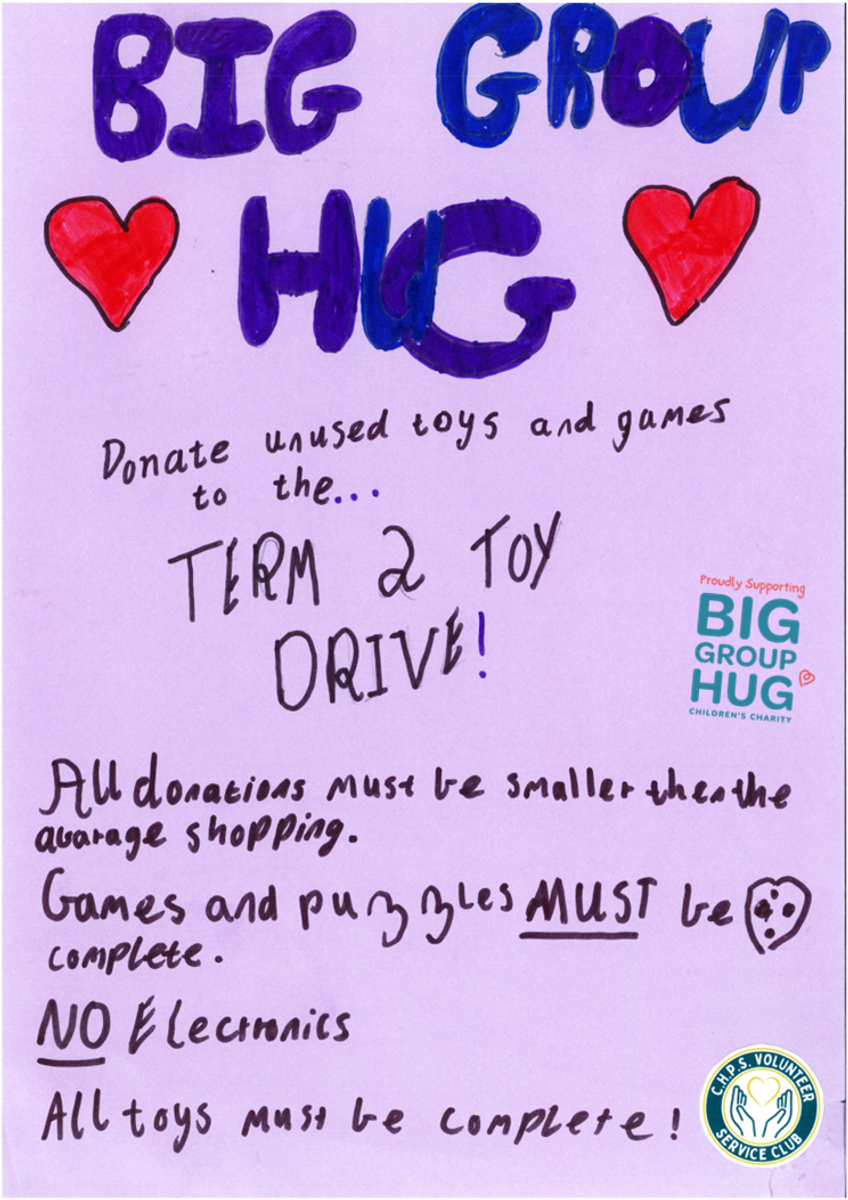 BIG GROUP
HUG
Donate unused toys and games
to the...
TERM 2 TOY
DRIVE!
Proudly Supporting
BIG
GROUP
HUG
CHILDREN'S CHARITY
All donations must be smaller then the
avarage shopping.
Games and puzzles MUST be
complete.
NO Electronics
All toys must be complete!
C.H.P.S. VOLUNTEER
SERVICE CLUB